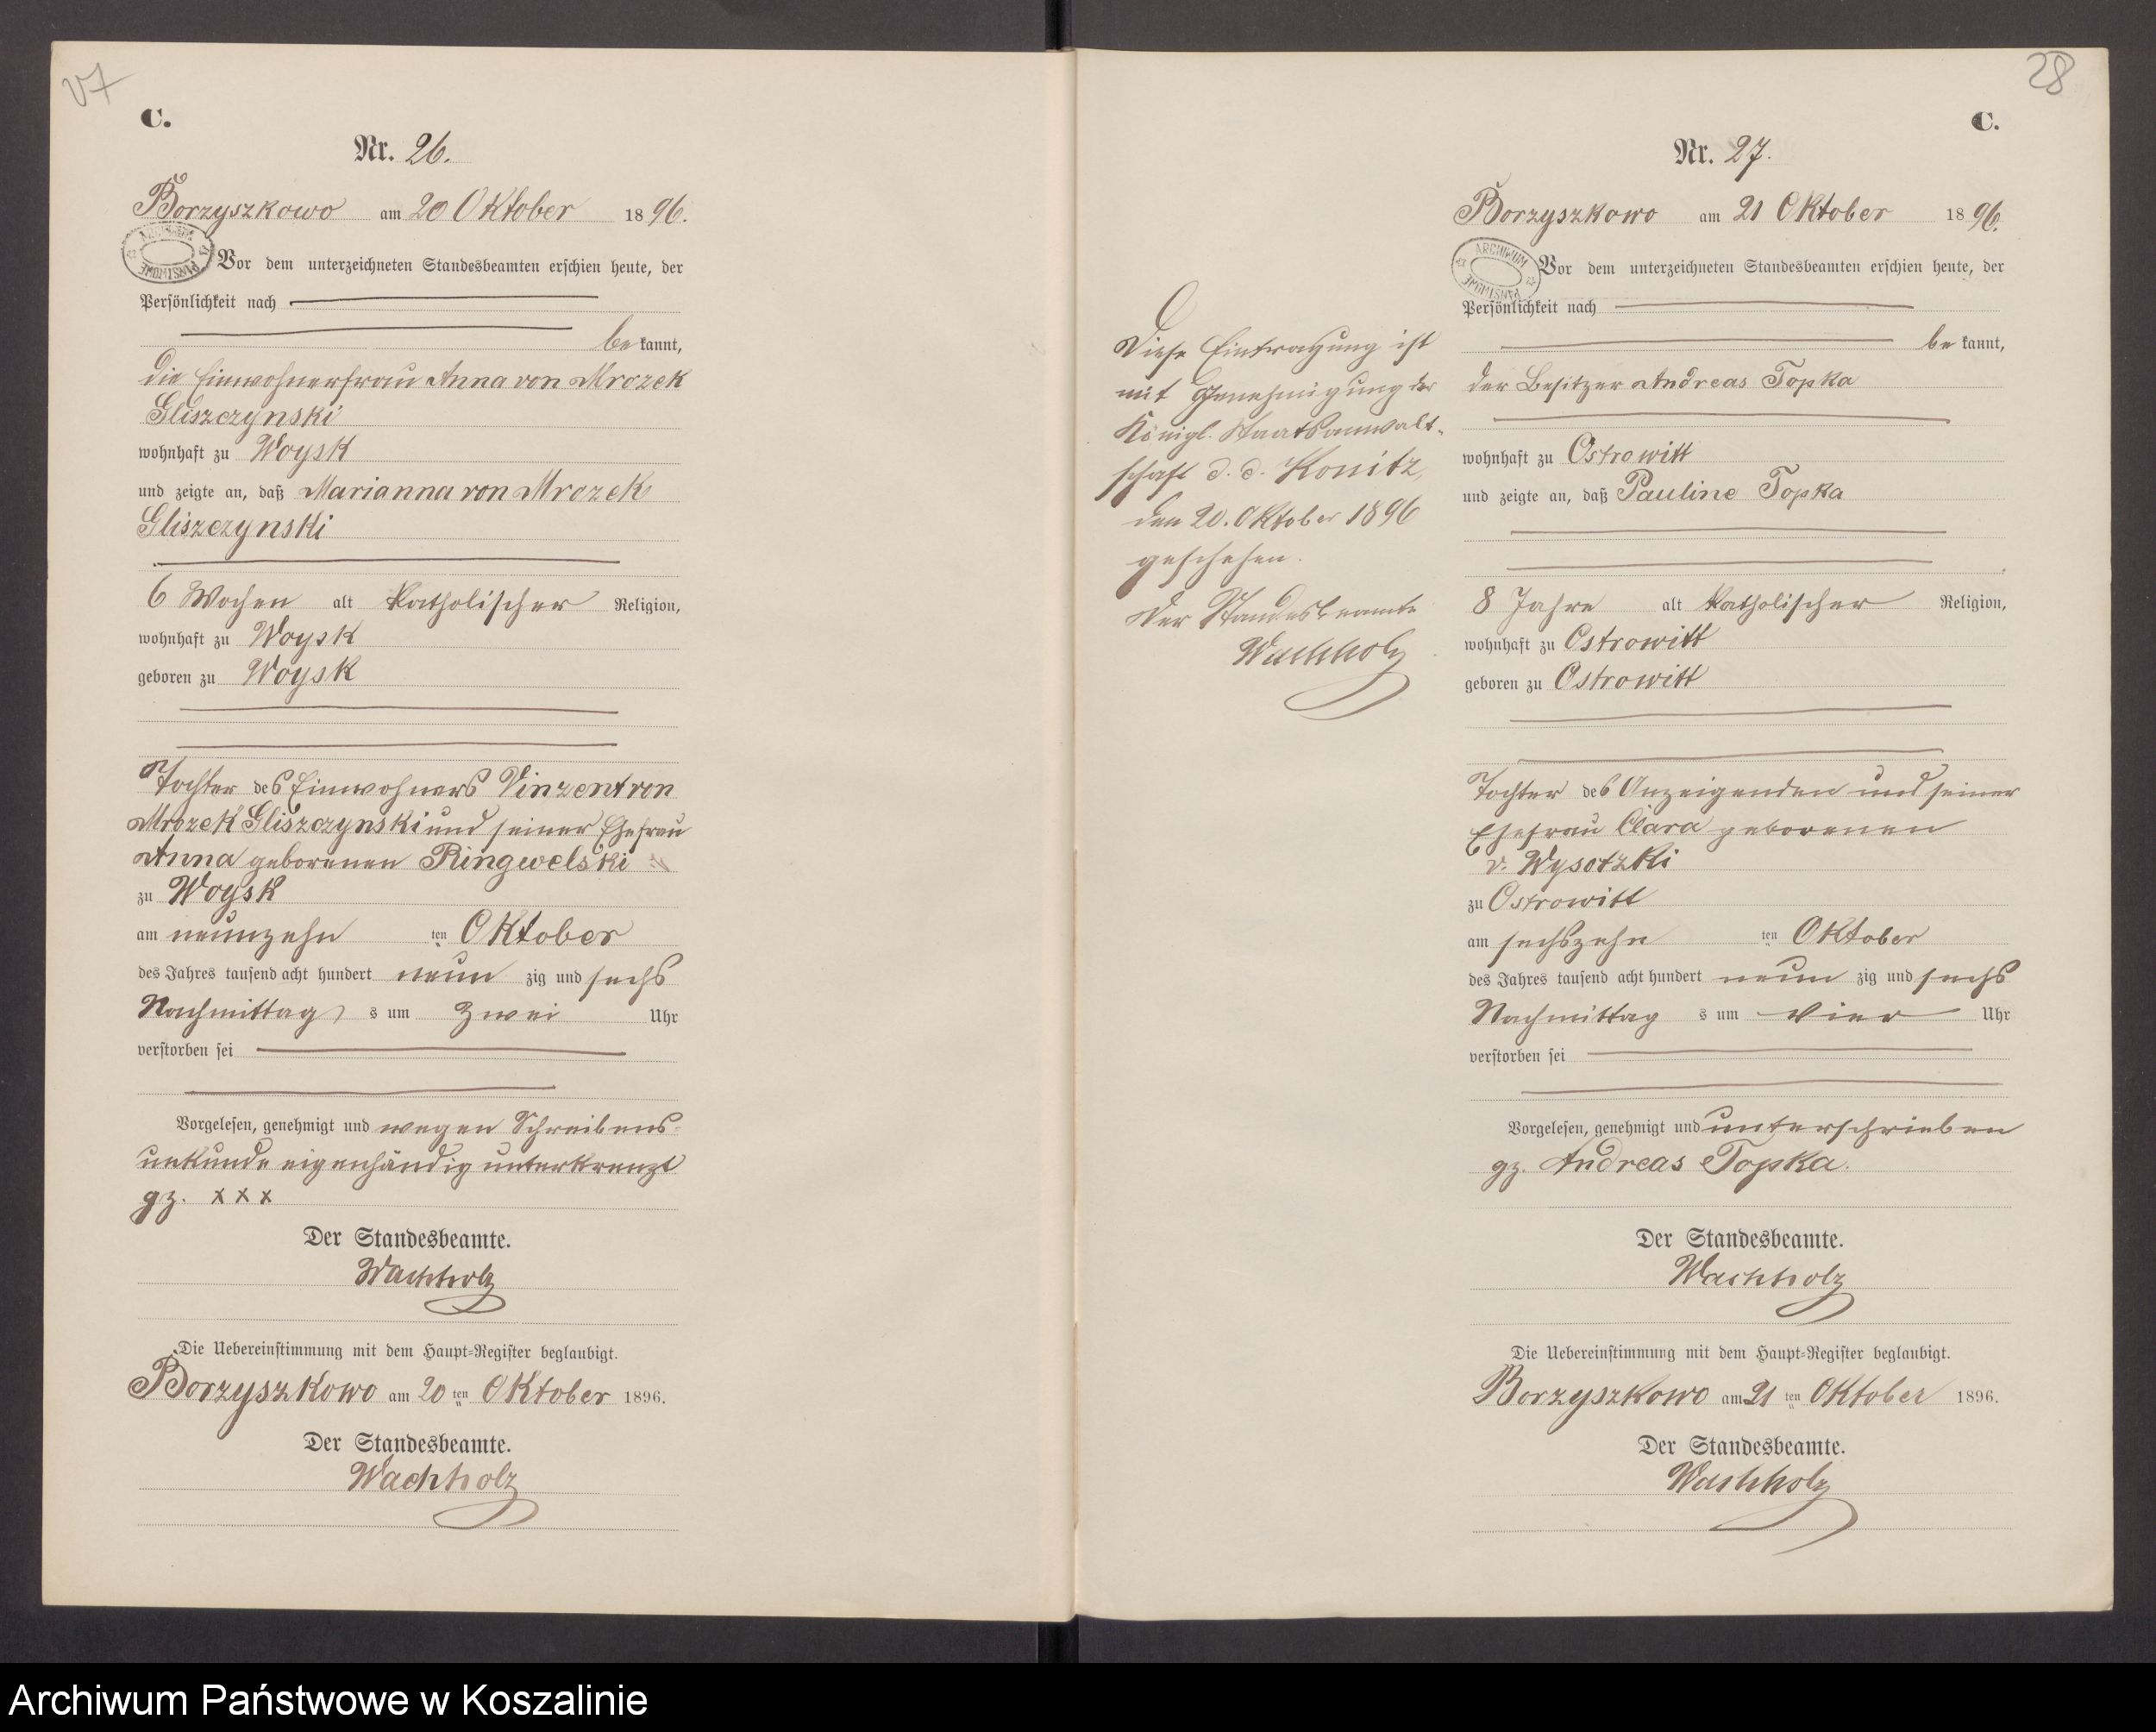 27
C.
Nr. 26.
Borzyszkowo am 20 Oktober 1896.
ARCHIWUM PAŃSTWOWE
Vor dem unterzeichneten Standesbeamten erschien heute, der
Persönlichkeit nach
be kannt,
die Einwohnerfrau Anna von Mrozek
Gliszczynski
wohnhaft zu Woysk
und zeigte an, daß Marianna von Mrozek
Gliszczynski
6 Wochen alt katholischer Religion,
wohnhaft zu Woysk
geboren zu Woysk
Tochter des Einwohners Vinzent von
Mrozek Gliszczynski und seiner Ehefrau
Anna geborenen Ringwelski
zu Woysk
am neunzehn ten Oktober
des Jahres tausend acht hundert neun zig und sechs
Nachmittag s um zwei Uhr
verstorben sei
Vorgelesen, genehmigt und wegen Schreibens-
unkunde eigenhändig unterkreuzt
gz. x x x
Der Standesbeamte.
Wachholz
Die Uebereinstimmung mit dem Haupt-Register beglaubigt.
Borzyszkowo am 20 ten Oktober 1896.
Der Standesbeamte.
Wachholz
28
C.
Nr. 27.
Borzyszkowo am 21 Oktober 1896.
ARCHIWUM PAŃSTWOWE
Vor dem unterzeichneten Standesbeamten erschien heute, der
Persönlichkeit nach
be kannt,
der Besitzer Andreas Topka
wohnhaft zu Ostrowitt
und zeigte an, daß Pauline Topka
8 Jahre alt katholischer Religion,
wohnhaft zu Ostrowitt
geboren zu Ostrowitt
Tochter des Anzeigenden und seiner
Ehefrau Clara geborenen
v. Wysotzki
zu Ostrowitt
am sechszehn ten Oktober
des Jahres tausend acht hundert neun zig und sechs
Nachmittag s um vier Uhr
verstorben sei
Vorgelesen, genehmigt und unterschrieben
gz. Andreas Topka.
Der Standesbeamte.
Wachholz
Die Uebereinstimmung mit dem Haupt-Register beglaubigt.
Borzyszkowo am 21 ten Oktober 1896.
Der Standesbeamte.
Wachholz
Diese Eintragung ist
mit Genehmigung der
Königl. Staatsanwalt-
schaft d. d. Konitz,
den 20. Oktober 1896
geschehen.
Der Standesbeamte
Wachholz
Archiwum Państwowe w Koszalinie